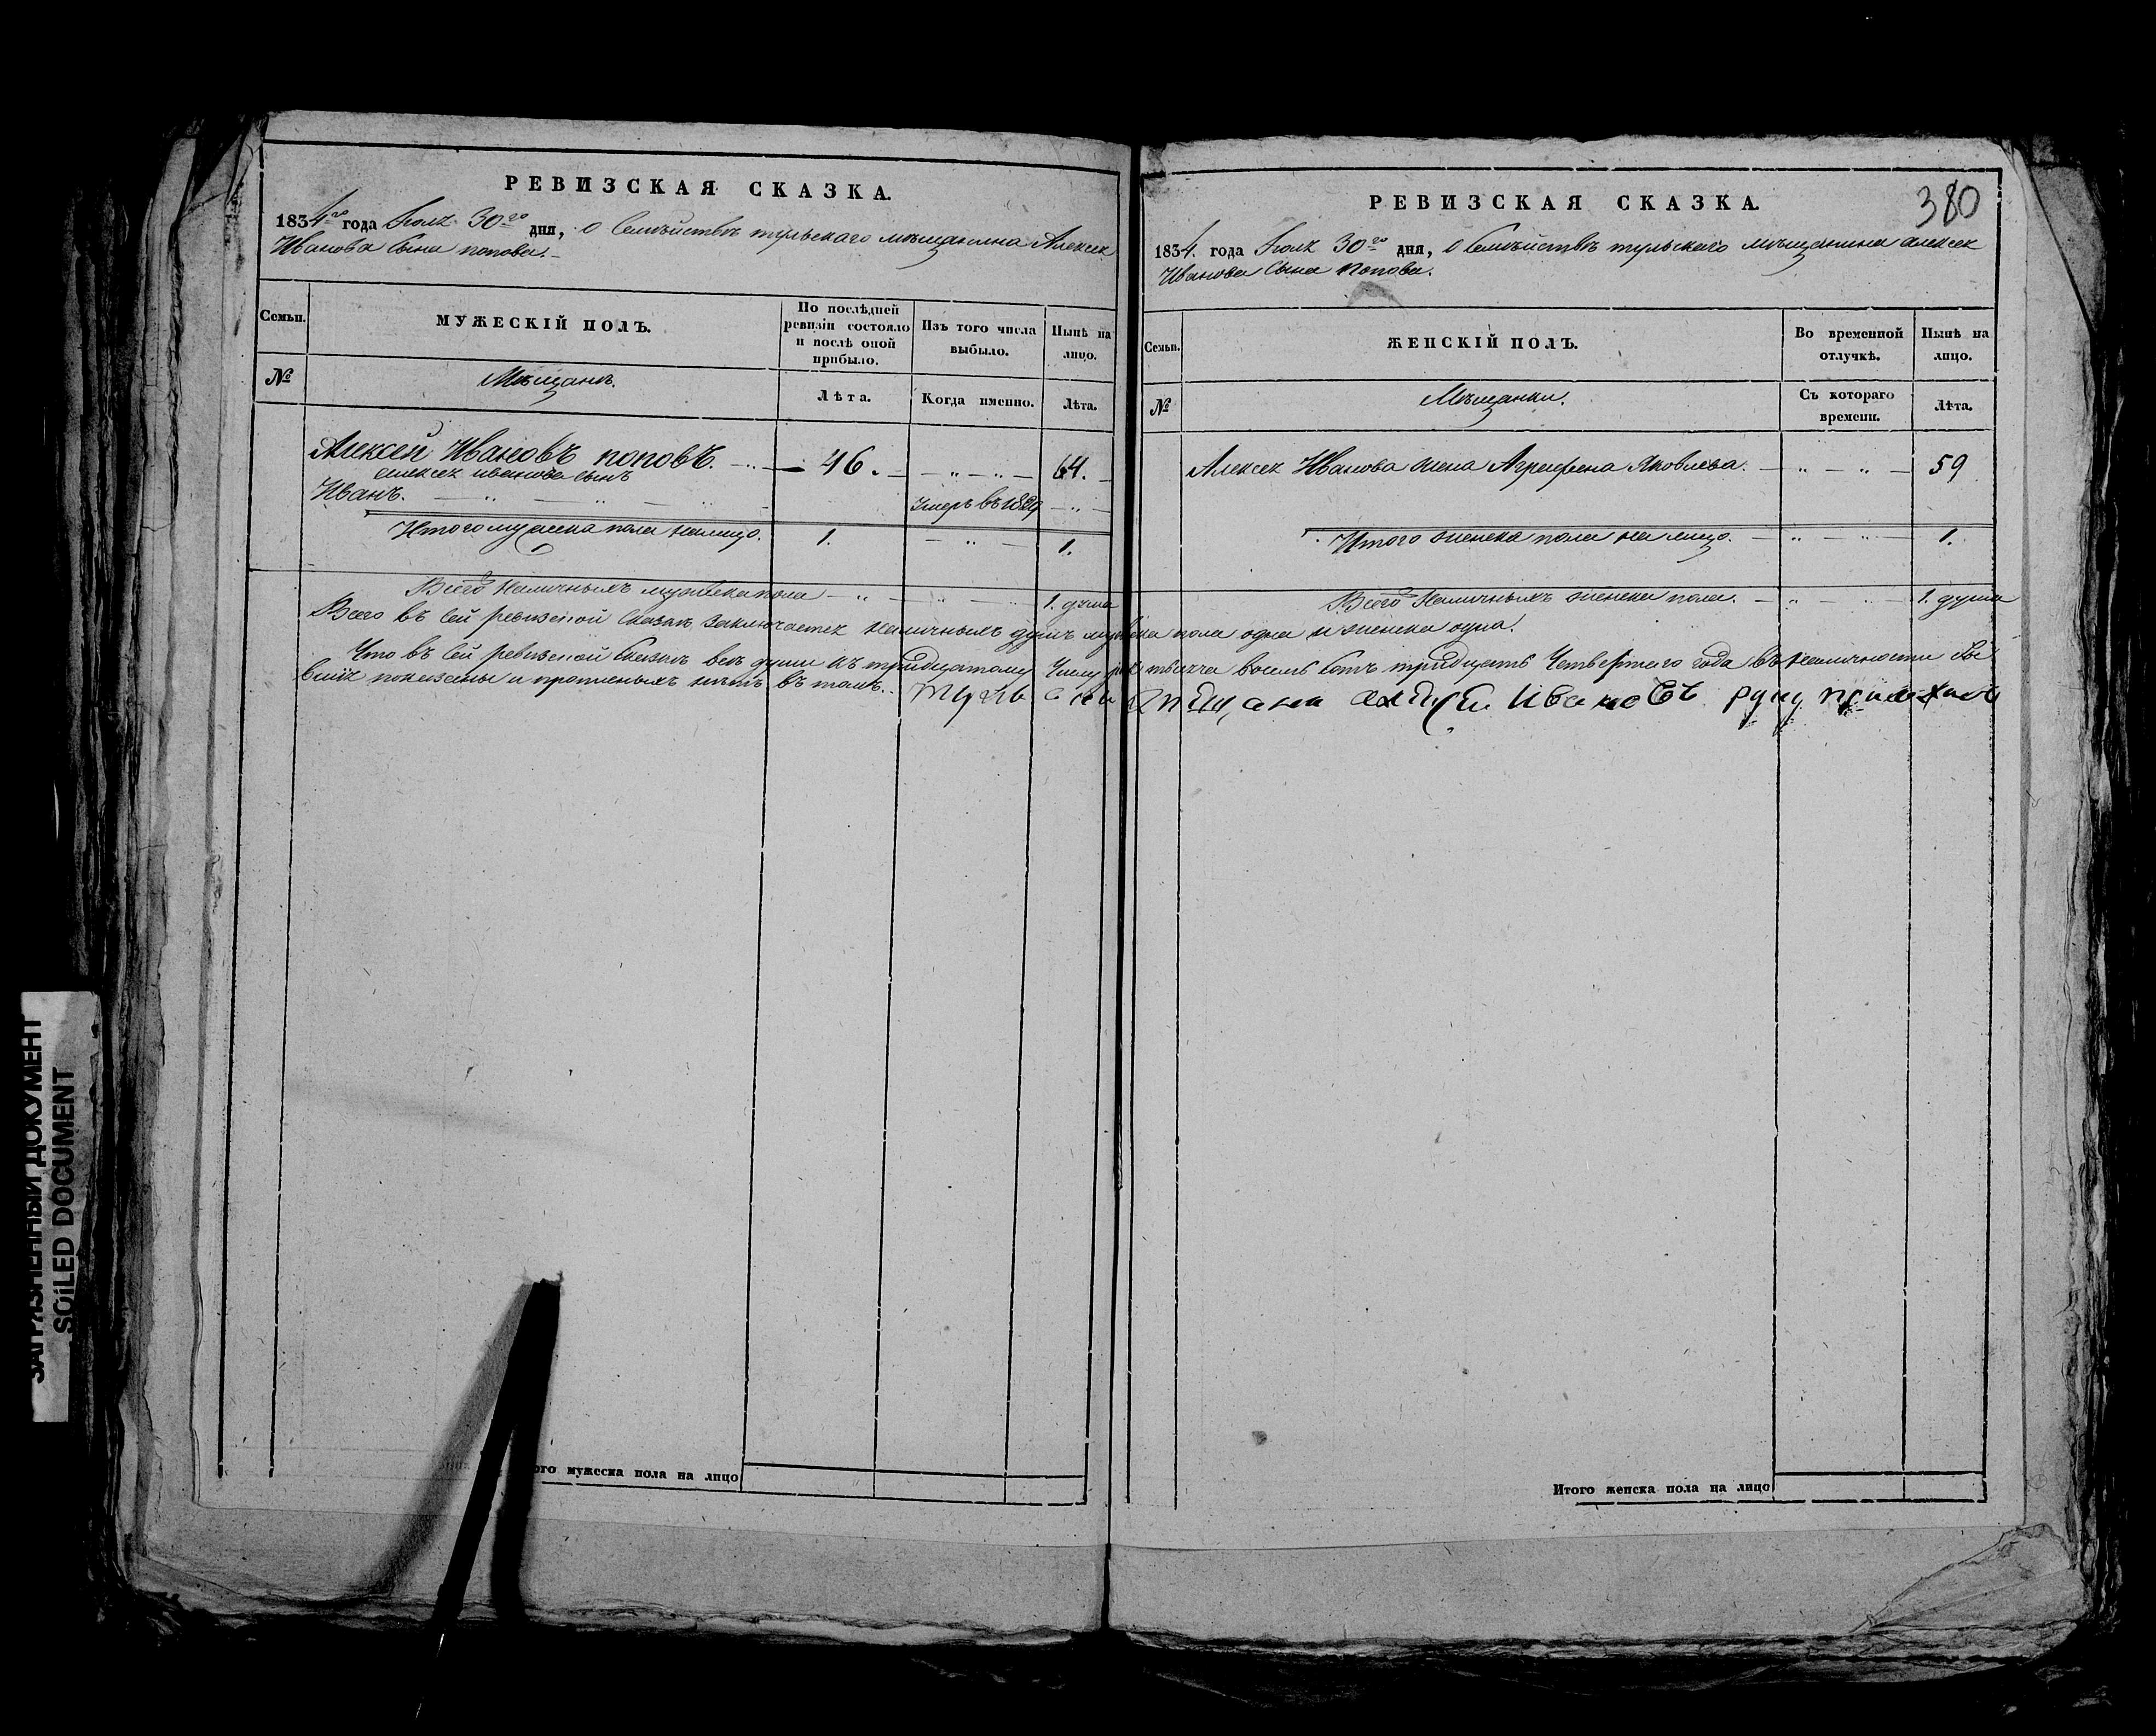 РЕВИЗСКАЯ СКАЗКА.
1834го года Июля 30го дня, о Семѣйствѣ тульскаго мѣщанина Алексея
Иванова Сына попова.
Семьи.
МУЖЕСКІЙ ПОЛЪ.
По послѣдней ревизіи состояло и послѣ оной прибыло.
Изъ того числа выбыло.
Нынѣ на лицо.
№
Мѣщанъ.
Лѣта.
Когда именно.
Лѣта.
Алексей Ивановъ поповъ. 46. 64.
Алексея иванова Сынъ
Иванъ. Умеръ въ 1829
Итого мужеска пола налицо. 1. 1.
Всего Наличныхъ мужеска пола 1. душа
ого мужеска пола на лицо
380
РЕВИЗСКАЯ СКАЗКА.
1834. года Июля 30го дня, о Семѣйствѣ тульскаго мѣщанина Алексея
Иванова Сына Попова.
Семьи.
ЖЕНСКІЙ ПОЛЪ.
Во временной отлучкѣ.
Нынѣ на лицо.
№
Мѣщанки.
Съ котораго времени.
Лѣта.
Алексея Иванова жена Агрефена Яковлева. 59
Итого женска пола на лицо. 1.
Всего Наличныхъ женска пола. 1. душа
Всего въ Сей ревизской Сказке Заключается наличныхъ душъ мужеска пола одна и женска одна.
Что въ Сей ревизской Сказке всѣ души къ тридцатому Числу тысяча восемь Сотъ тридцать Четвертого года въ Наличности бы
вшия показаны и прописныхъ нѣтъ въ томъ.
Алексей Ивановъ руку приложилъ
Итого женска пола на лицо
ЗАГРЯЗНЕННЫЙ ДОКУМЕНТ
SOILED DOCUMENT